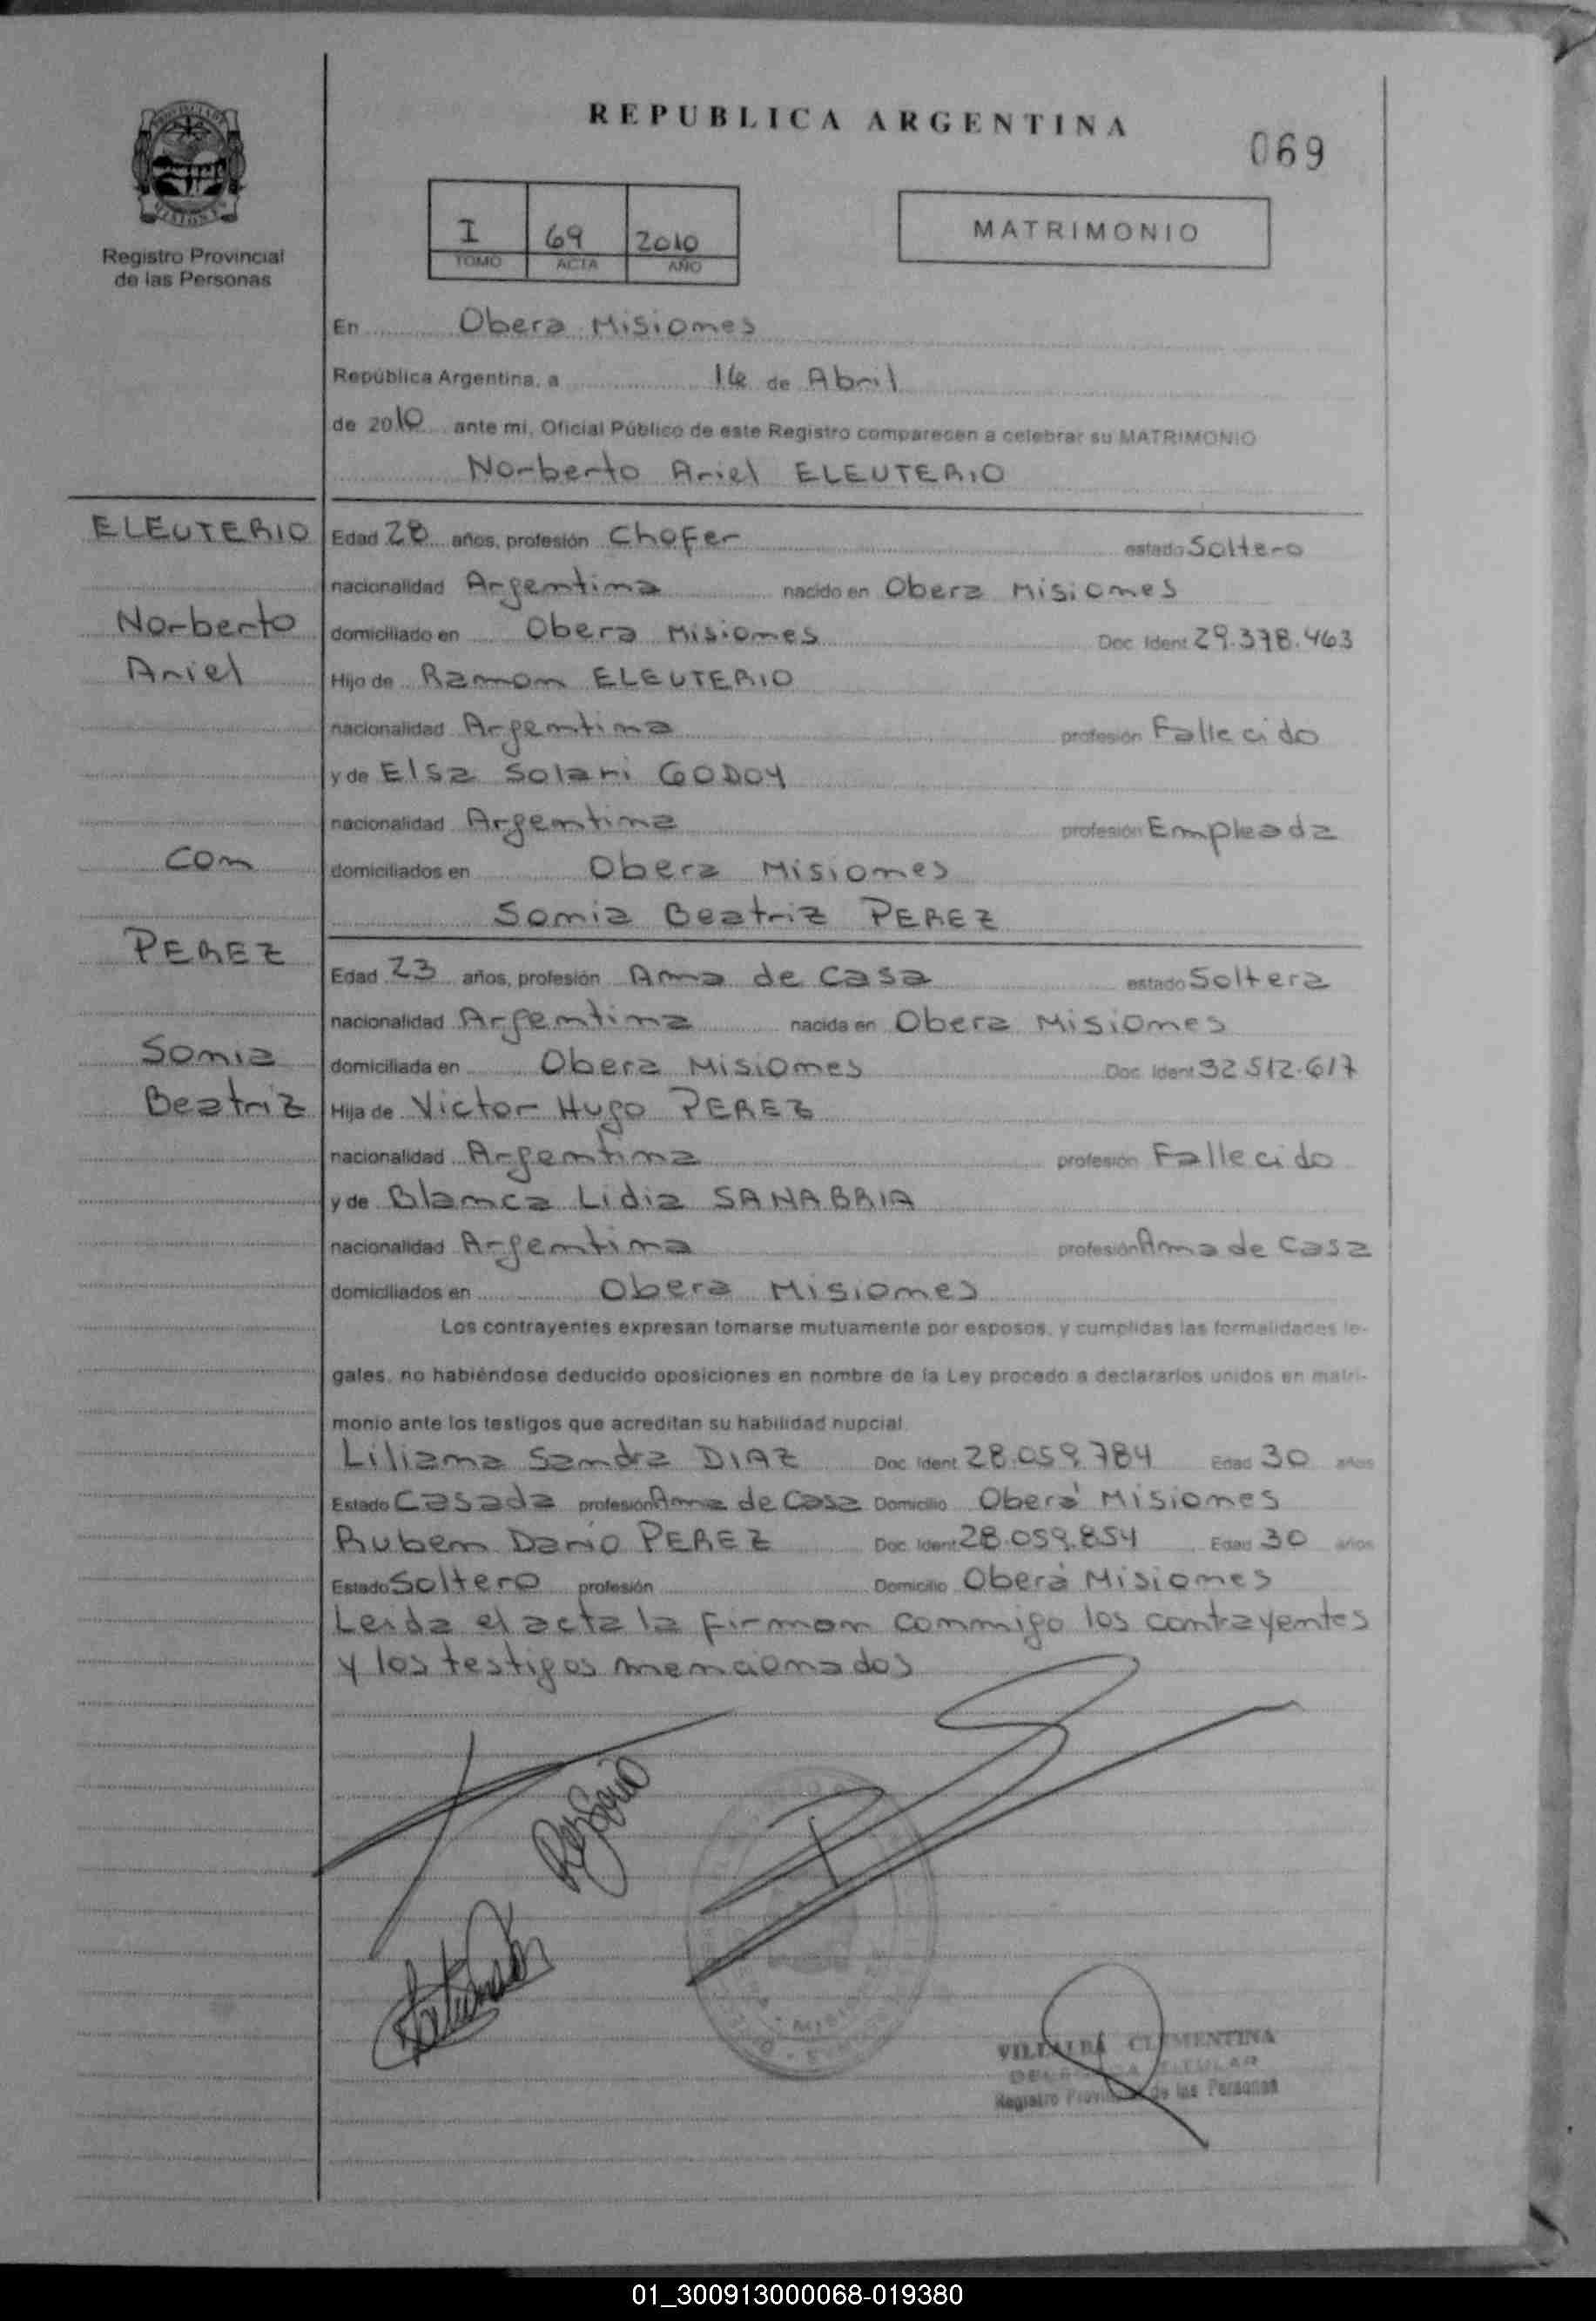 REPUBLICA ARGENTINA
069
Registro Provincial
de las Personas
I 69 2010
TOMO ACTA AÑO
MATRIMONIO
En Obera Misiones
República Argentina, a 16 de Abril
de 2010 ante mi, Oficial Público de este Registro comparecen a celebrar su MATRIMONIO
Norberto Ariel ELEUTERIO
ELEUTERIO
Norberto
Ariel
Con
PEREZ
Sonia
Beatriz
Edad 28 años, profesión Chofer estado Soltero
nacionalidad Argentina nacido en Obera Misiones
domiciliado en Obera Misiones Doc. Ident 29.378.463
Hijo de Ramon ELEUTERIO
nacionalidad Argentina profesión Fallecido
y de Elsa Solari GODOY
nacionalidad Argentina profesión Empleada
domiciliados en Obera Misiones
Sonia Beatriz PEREZ
Edad 23 años, profesión Ama de Casa estado Soltera
nacionalidad Argentina nacida en Obera Misiones
domiciliada en Obera Misiones Doc. Ident 32.512.617
Hija de Victor Hugo PEREZ
nacionalidad Argentina profesión Fallecido
y de Blanca Lidia SANABRIA
nacionalidad Argentina profesión Ama de Casa
domiciliados en Obera Misiones
Los contrayentes expresan tomarse mutuamente por esposos, y cumplidas las formalidades le-
gales, no habiéndose deducido oposiciones en nombre de la Ley procedo a declararlos unidos en matri-
monio ante los testigos que acreditan su habilidad nupcial.
Liliana Sandra DIAZ Doc. Ident 28.059.784 Edad 30 años
Estado Casada profesión Ama de Casa Domicilio Oberá Misiones
Ruben Dario PEREZ Doc. Ident 28.059.854 Edad 30 años
Estado Soltero profesión Domicilio Oberá Misiones
Leida el acta la firman conmigo los contrayentes
y los testigos mencionados
VILLALBA CLEMENTINA
Registro Provincial de las Personas
01_300913000068-019380